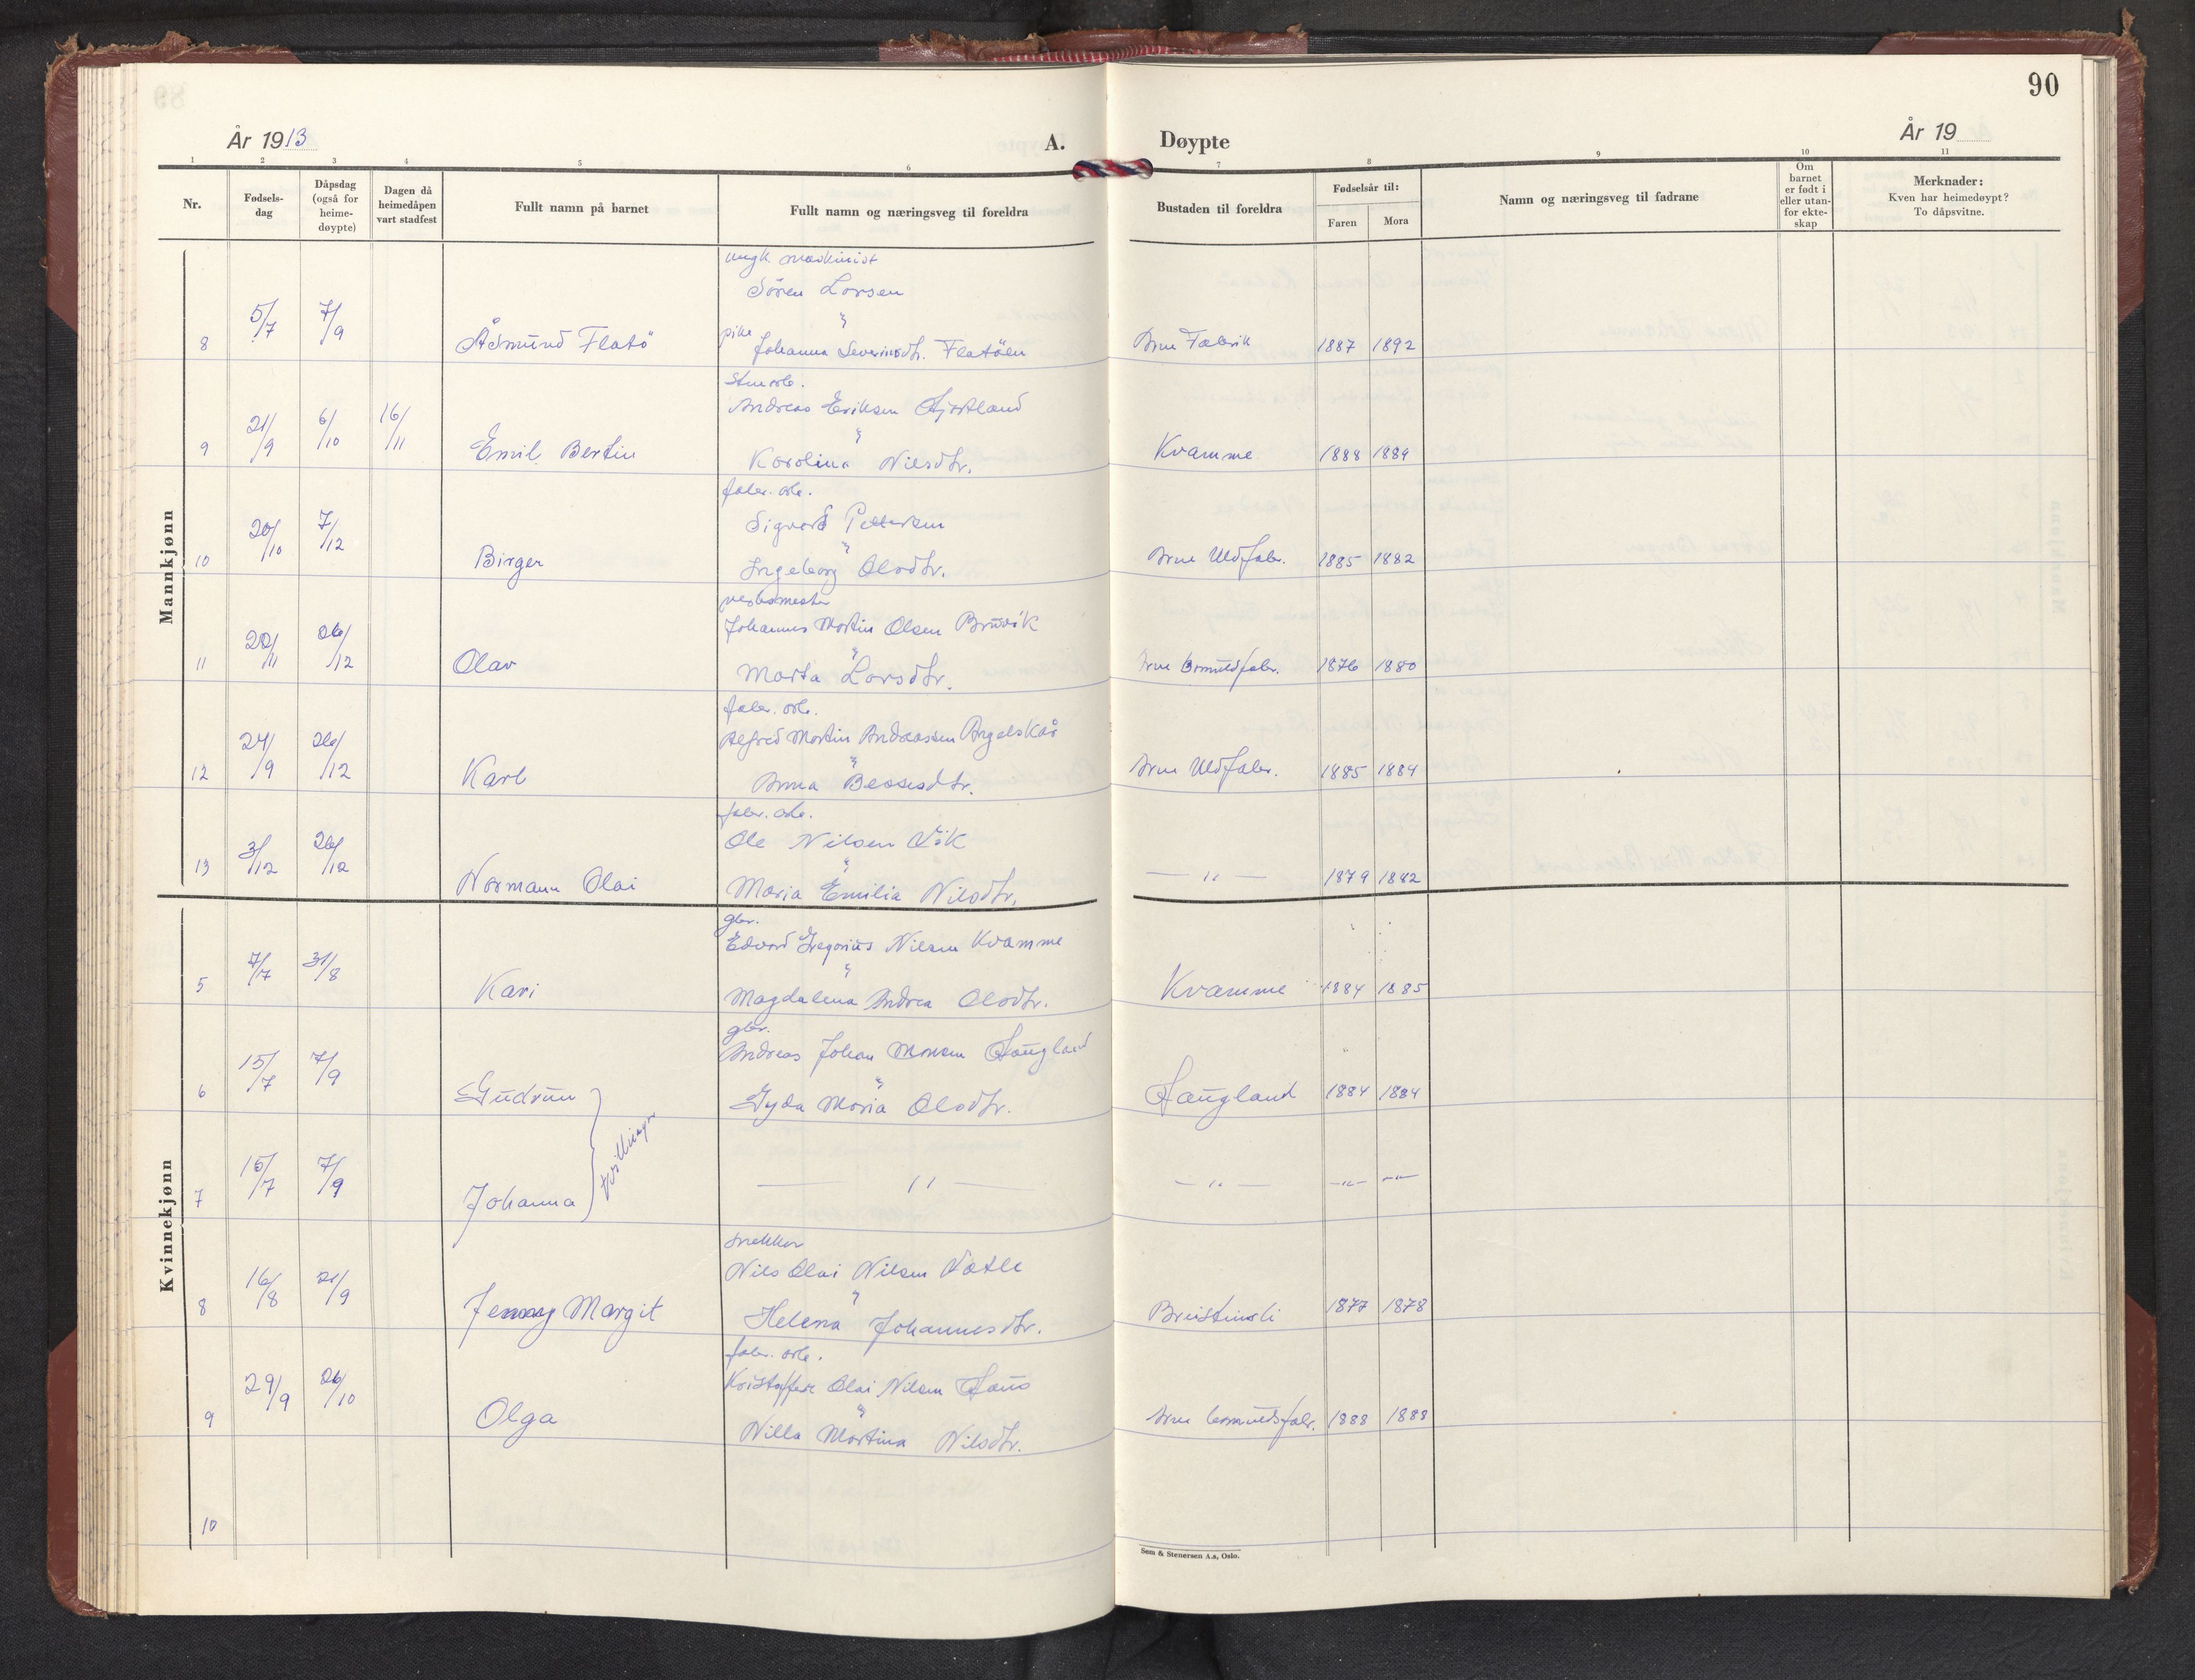 90
År 1913
A.
Døypte
År 19
1 2 3 4 5 6 7 8 9 10 11
Nr.
Fødsels-
dag
Dåpsdag
(også for
heime-
døypte)
Dagen då
heimedåpen
vart stadfest
Fullt namn på barnet
Fullt namn og næringsveg til foreldra
Bustaden til foreldra
Fødselsår til:
Faren
Mora
Namn og næringsveg til fadrane
Om
barnet
er født i
eller utan-
for ekte-
skap
Merknader:
Kven har heimedøypt?
To dåpsvitne.
Mankjønn
ungk. maskinist
Søren Larsen
"
pike
8 5/7 7/9 Åsmund Flatö Johanna Severinsdtr. Flatöen Arne Fabrik 1887 1892
Andreas Eriksen Hjortland
"
9 21/9 6/10 16/11 Emil Bertin Karolina Nilsdtr. Kvamme 1888 1889
fabr. arb.
Sigvard Pettersen
"
10 20/10 7/12 Birger Ingeborg Olsdtr. Arne Uldfabr. 1885 1882
verksmester
Johannes Martin Olsen Bruvik
"
11 20/11 26/12 Olav Marta Larsdtr. Arne bomuldsfabr. 1876 1880
fabr. arb.
Alfred Martin Andreassen Angelskår
"
12 24/9 26/12 Karl Anna Beasesdtr. Arne Uldfabr. 1885 1884
fabr. arb.
Ole Nilsen Vik
"
13 3/12 26/12 Normann Olai Maria Emilia Nilsdtr. — " — 1879 1882
Kvinnekjønn
gbr.
Edvard Gregorius Nilsen Kvamme
"
5 7/7 31/8 Kari Magdalena Andrea Olsdtr. Kvamme 1884 1885
gbr.
Andreas Johan Monsen Haugland
"
6 15/7 7/9 Gudrun Gyda Maria Olsdtr. Haugland 1884 1884
tvillinger
7 15/7 7/9 Johanna — " — — " — — " — — " —
snekker
Nils Olai Nilsen Votle
"
8 16/8 21/9 Jenny Margit Helena Johannesdtr. Breisteinsli 1877 1878
fabr. arb.
Kristoffer Olai Nilsen Haus
"
9 29/9 26/10 Olga Nilla Martina Nilsdtr. Arne bomuldsfabr. 1888 1888
10
Sem & Stenersen A.s, Oslo.